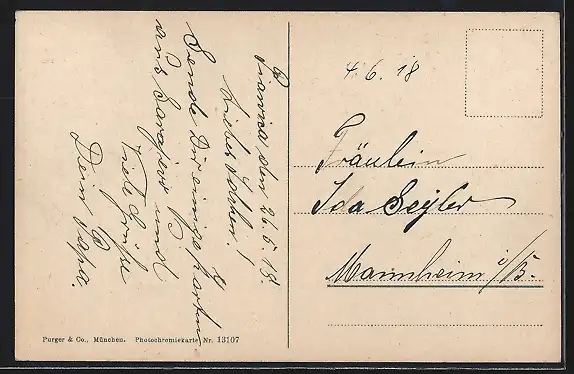 den 26.5.18.
Liebes Idchen!
Sende Dir einige Karten
aus Sarajevo und
viele Grüße
Dein Papa.
4.6.18
Fräulein
Ida Seyler
Mannheim i/B.
Purger & Co., München. Photochromiekarte Nr. 13107